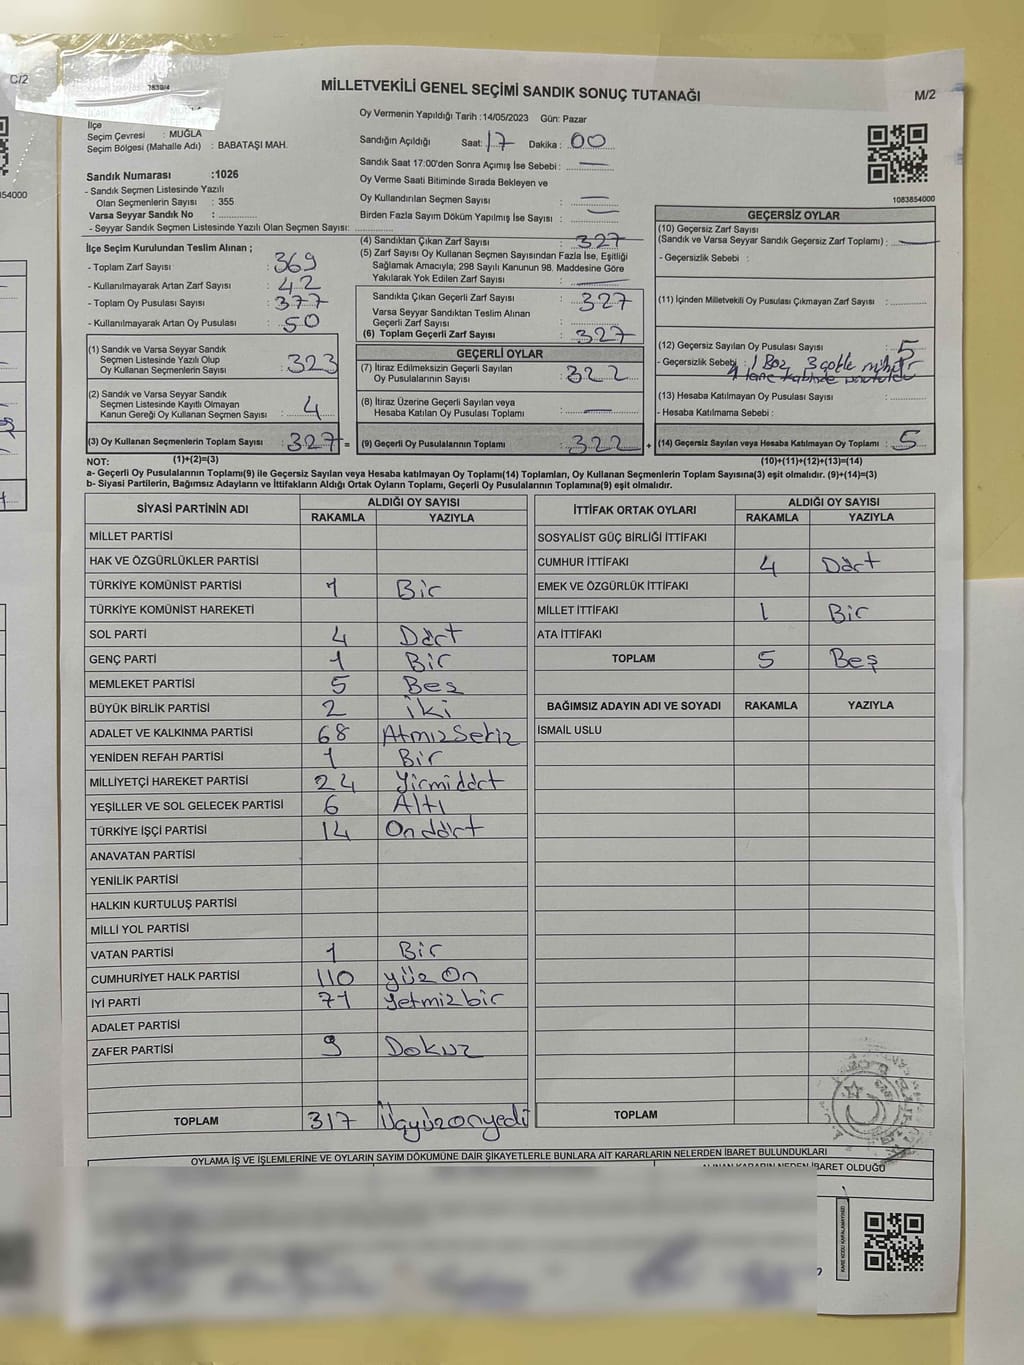 C/2
7839/4
MİLLETVEKİLİ GENEL SEÇİMİ SANDIK SONUÇ TUTANAĞI
M/2
İlçe
Seçim Çevresi : MUĞLA
Seçim Bölgesi (Mahalle Adı) : BABATAŞI MAH.
Sandık Numarası :1026
- Sandık Seçmen Listesinde Yazılı
Olan Seçmenlerin Sayısı : 355
Varsa Seyyar Sandık No :
- Seyyar Sandık Seçmen Listesinde Yazılı Olan Seçmen Sayısı:
Oy Vermenin Yapıldığı Tarih :14/05/2023 Gün: Pazar
Sandığın Açıldığı Saat: 17 Dakika : 00
Sandık Saat 17:00'den Sonra Açımış İse Sebebi : —
Oy Verme Saati Bitiminde Sırada Bekleyen ve
Oy Kullandırılan Seçmen Sayısı : —
Birden Fazla Sayım Döküm Yapılmış İse Sayısı : —
54000
1083854000
İlçe Seçim Kurulundan Teslim Alınan ;
- Toplam Zarf Sayısı : 369
- Kullanılmayarak Artan Zarf Sayısı : 42
- Toplam Oy Pusulası Sayısı : 377
- Kullanılmayarak Artan Oy Pusulası : 50
(1) Sandık ve Varsa Seyyar Sandık
Seçmen Listesinde Yazılı Olup
Oy Kullanan Seçmenlerin Sayısı : 323
(2) Sandık ve Varsa Seyyar Sandık
Seçmen Listesinde Kayıtlı Olmayan
Kanun Gereği Oy Kullanan Seçmen Sayısı : 4
(3) Oy Kullanan Seçmenlerin Toplam Sayısı : 327 =
(4) Sandıktan Çıkan Zarf Sayısı : 327
(5) Zarf Sayısı Oy Kullanan Seçmen Sayısından Fazla İse, Eşitliği
Sağlamak Amacıyla; 298 Sayılı Kanunun 98. Maddesine Göre
Yakılarak Yok Edilen Zarf Sayısı : —
Sandıkta Çıkan Geçerli Zarf Sayısı : 327
Varsa Seyyar Sandıktan Teslim Alınan
Geçerli Zarf Sayısı :
(6) Toplam Geçerli Zarf Sayısı : 327
GEÇERLİ OYLAR
(7) İtiraz Edilmeksizin Geçerli Sayılan
Oy Pusulalarının Sayısı : 322
(8) İtiraz Üzerine Geçerli Sayılan veya
Hesaba Katılan Oy Pusulası Toplamı : —
(9) Geçerli Oy Pusulalarının Toplamı : 322 +
GEÇERSİZ OYLAR
(10) Geçersiz Zarf Sayısı
(Sandık ve Varsa Seyyar Sandık Geçersiz Zarf Toplamı) : —
- Geçersizlik Sebebi :
(11) İçinden Milletvekili Oy Pusulası Çıkmayan Zarf Sayısı :
(12) Geçersiz Sayılan Oy Pusulası Sayısı : 5
- Geçersizlik Sebebi : 1 Boş 3 çokle mühür
1 tane kabinde
(13) Hesaba Katılmayan Oy Pusulası Sayısı :
- Hesaba Katılmama Sebebi :
(14) Geçersiz Sayılan veya Hesaba Katılmayan Oy Toplamı : 5
NOT: (1)+(2)=(3)
(10)+(11)+(12)+(13)=(14)
a- Geçerli Oy Pusulalarının Toplamı(9) ile Geçersiz Sayılan veya Hesaba katılmayan Oy Toplamı(14) Toplamları, Oy Kullanan Seçmenlerin Toplam Sayısına(3) eşit olmalıdır. (9)+(14)=(3)
b- Siyasi Partilerin, Bağımsız Adayların ve İttifakların Aldığı Ortak Oyların Toplamı, Geçerli Oy Pusulalarının Toplamına(9) eşit olmalıdır.
SİYASİ PARTİNİN ADI ALDIĞI OY SAYISI
RAKAMLA YAZIYLA
MİLLET PARTİSİ
HAK VE ÖZGÜRLÜKLER PARTİSİ
TÜRKİYE KOMÜNİST PARTİSİ 1 Bir
TÜRKİYE KOMÜNİST HAREKETİ
SOL PARTİ 4 Dört
GENÇ PARTİ 1 Bir
MEMLEKET PARTİSİ 5 Bes
BÜYÜK BİRLİK PARTİSİ 2 iki
ADALET VE KALKINMA PARTİSİ 68 AtmızSekiz
YENİDEN REFAH PARTİSİ 1 Bir
MİLLİYETÇİ HAREKET PARTİSİ 24 Yirmidört
YEŞİLLER VE SOL GELECEK PARTİSİ 6 Altı
TÜRKİYE İŞÇİ PARTİSİ 14 Ondört
ANAVATAN PARTİSİ
YENİLİK PARTİSİ
HALKIN KURTULUŞ PARTİSİ
MİLLİ YOL PARTİSİ
VATAN PARTİSİ 1 Bir
CUMHURİYET HALK PARTİSİ 110 yüz On
İYİ PARTİ 71 Yetmizbir
ADALET PARTİSİ
ZAFER PARTİSİ 9 Dokuz
TOPLAM 317 Üçyüzonyedi
İTTİFAK ORTAK OYLARI ALDIĞI OY SAYISI
RAKAMLA YAZIYLA
SOSYALİST GÜÇ BİRLİĞİ İTTİFAKI
CUMHUR İTTİFAKI 4 Dört
EMEK VE ÖZGÜRLÜK İTTİFAKI
MİLLET İTTİFAKI 1 Bir
ATA İTTİFAKI
TOPLAM 5 Beş
BAĞIMSIZ ADAYIN ADI VE SOYADI RAKAMLA YAZIYLA
İSMAİL USLU
TOPLAM
OYLAMA İŞ VE İŞLEMLERİNE VE OYLARIN SAYIM DÖKÜMÜNE DAİR ŞİKAYETLERLE BUNLARA AİT KARARLARIN NELERDEN İBARET BULUNDUKLARI
ALINAN KARARIN NEDEN İBARET OLDUĞU
KARE KODU KARALAMAYINIZ!